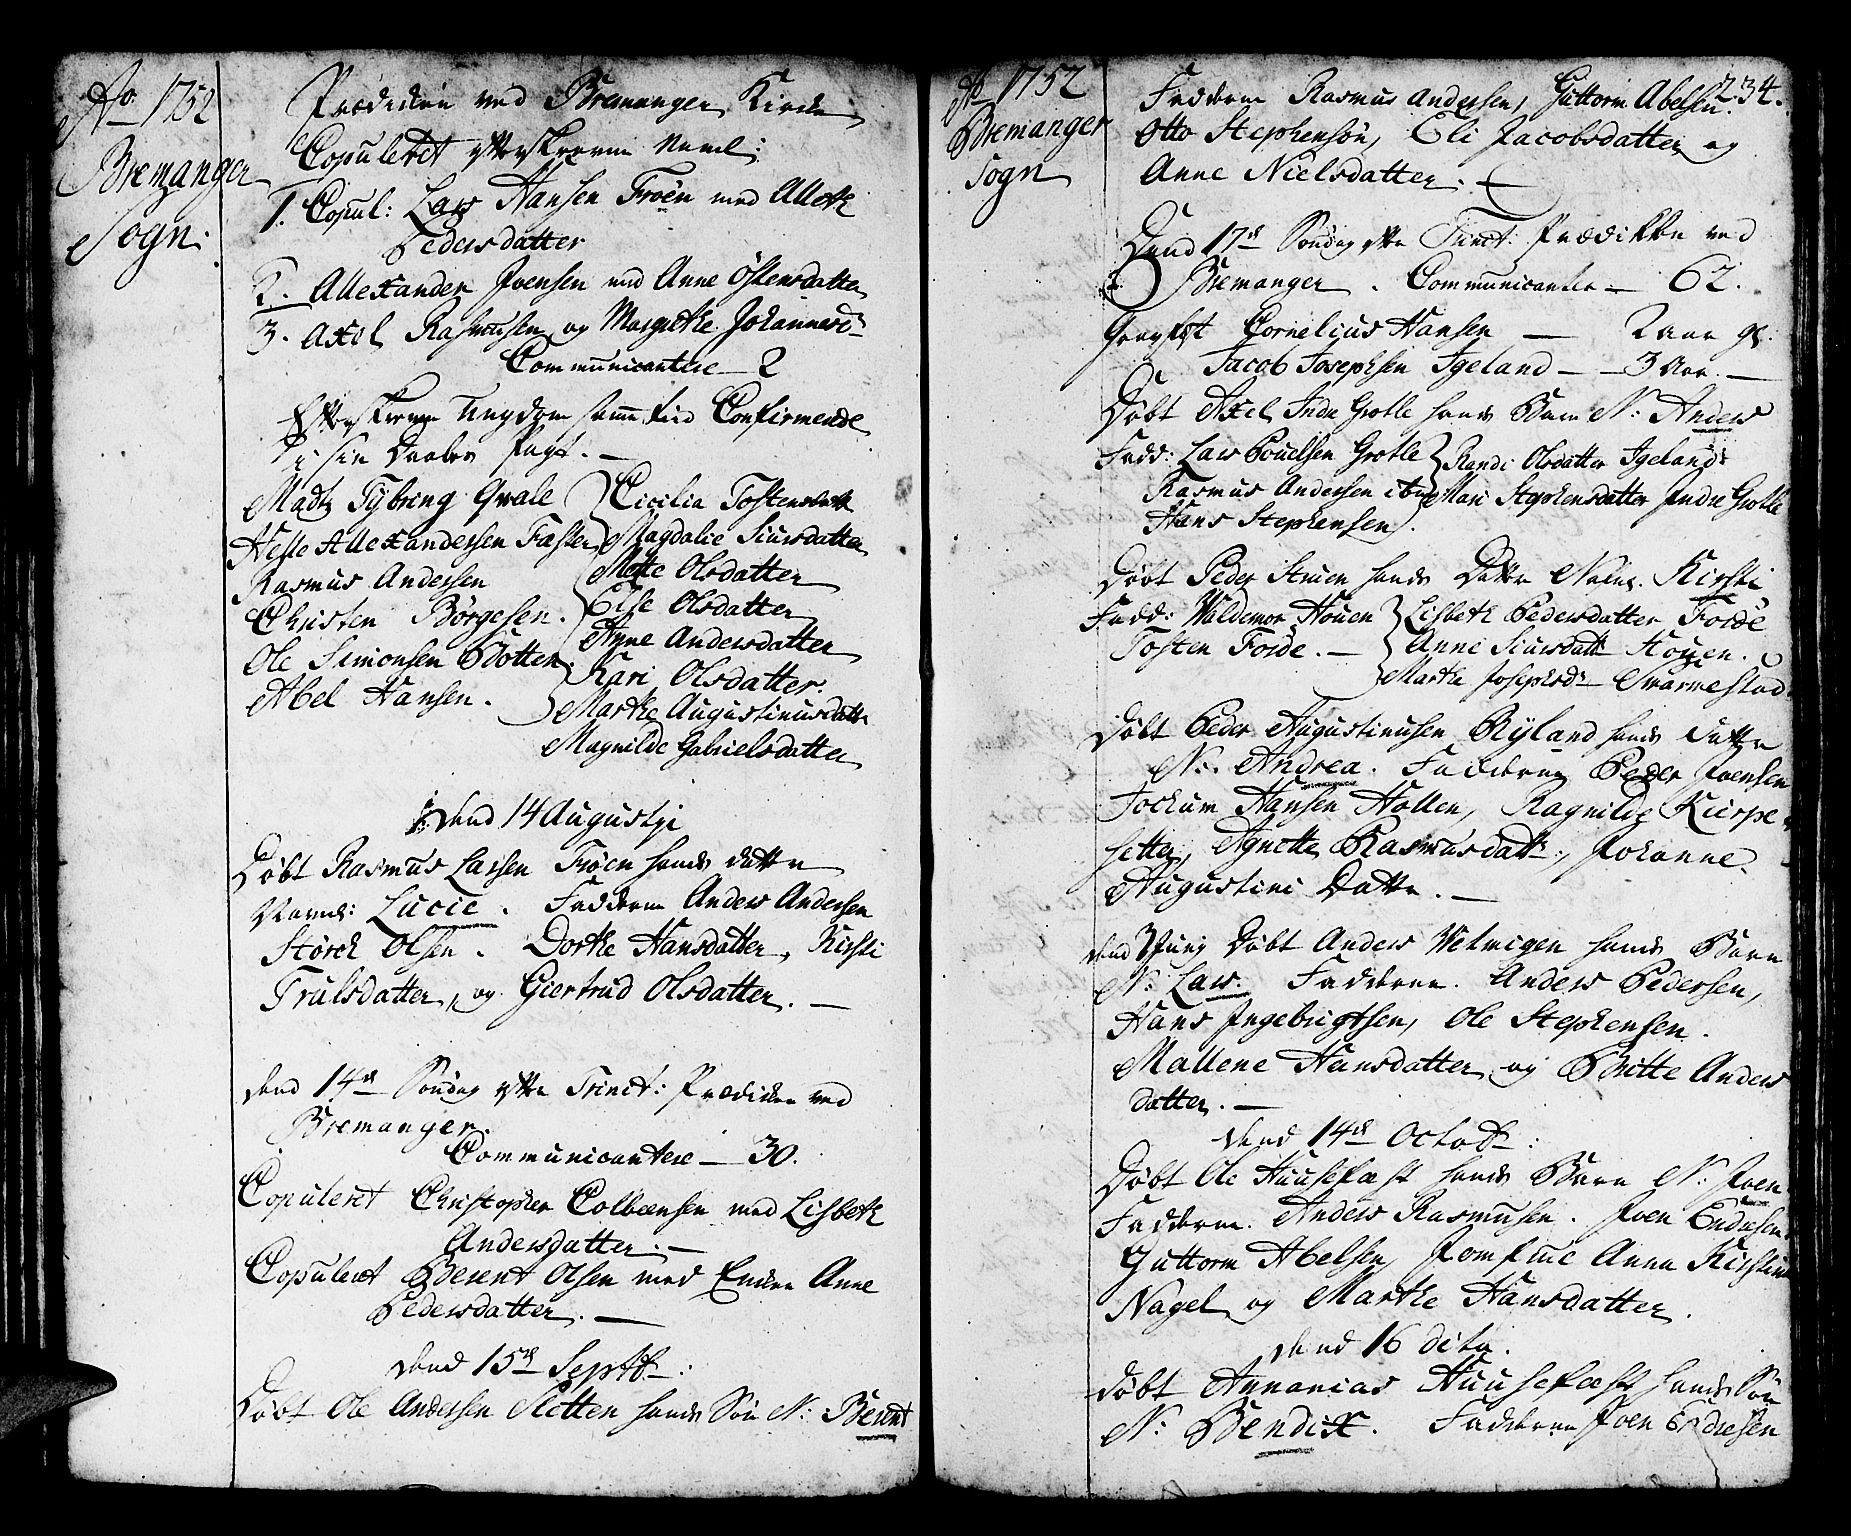 Ao 1752
Bremanger
Sogn.
Prædiken ved Bremanger Kirche
Copuleret efterskrevne Navnl:
1. Copul: Lars Hansen Froen med Alleth
Pedersdatter
2. Allexander Joensen med Anne Östensdatter
3. Axel Rasmusen og Margrethe Johannesd:
Communicantere — 2
Efterskrevne Ungdom samme tiid Confirmerede
i sin Daabes Pagt. —
Madtz Tybring Qvale
Helle Allexandersen
Rasmus Andersen
Christen Börgesen.
Ole Simonsen Botten
Abel Hansen.
Cicilia Tostensdatt
Magdalie Siursdatter
Mette Olsdatter
Else Olsdatter
Anne Andersdatter
Kari Olsdatter.
Marthe Augustinusdatter
Magnilde Gabrielsdatter
dend 14 Augustji
Döbt Rasmus Larsen Fröen hands datter
Navnl: Lucie. Fadderne Anders Andersen
Störch Olsen. Dorthe Hansdatter, Kirsti
Trulsdatter, og Giertrud Olsdatter. —
dend 14de Söndag efter Trinit: Prædiken ved
Bremanger.
Communicantere — 30.
Copuleret Christopher Colbensen med Lisbeth
Andersdatter. —
Copuleret Berent Olsen med Enken Anne
Pedersdatter. —
dend 15de Septbr:
Döbt Ole Andersen Sletten hands Sön N: Berent
Ao 1752
Bremanger
Sogn
234.
Fadderne Rasmus Andersen, Guttorm Abelsen.
Otto Stephensön, Eli Jacobsdatter og
Anne Nielsdatter. —
Dend 17de Söndag efter Trinit: Prædikke ved
Bremanger. Communicantere — 62.
Cornelius Hansen — 2 aar gl.
Jacob Josephsen Igeland — 3 Aar. —
Döbt Axel Indre Grotle hands Barn N: Anders
Fadd: Lars Pouelsen Grotle Randi Olsdatter Igeland
Rasmus Andersen ibm Mari Stephensdatter Indre Grotle
Hans Stephensen.
Döbt Peder Struen hands Datter Navnl. Kirsti
Fadd: Waldemor Houen Lisbeth Pedersdatter Forde
Tosten Forde. — Anne Siursdatt Houen.
Marthe Josephsd: Svarvestad
Döbt Peder Augustinusen Ryland hands datter
N: Andrea. Fadderne Peder Joensen
Jochum Hansen Hollen, Ragnilde Kierpe
setter, Agnette Rasmusdatt:, Johanne
Augustini Datter. —
dend Döbt Anders Vetvigen hands Barn
N: Lars. Fadderne. Anders Pedersen,
Hans Ingebrigtsen, Ole Stephensen.
Mallene Hansdatter og Britte Anders
datter. —
dend 14de Octobr:
Döbt Ole Huusefest hands Barn N: Joen
Fadderne. Anders Rasmusen. Joen Endresen
Guttorm Abelsen, Jomfrue Anna Kirstine
Nagel og Marthe Hansdatter.
dend 16 dito.
döbt Annanias Huusefest hands Sön
N: Bendix. Fadderne Joen Endresen